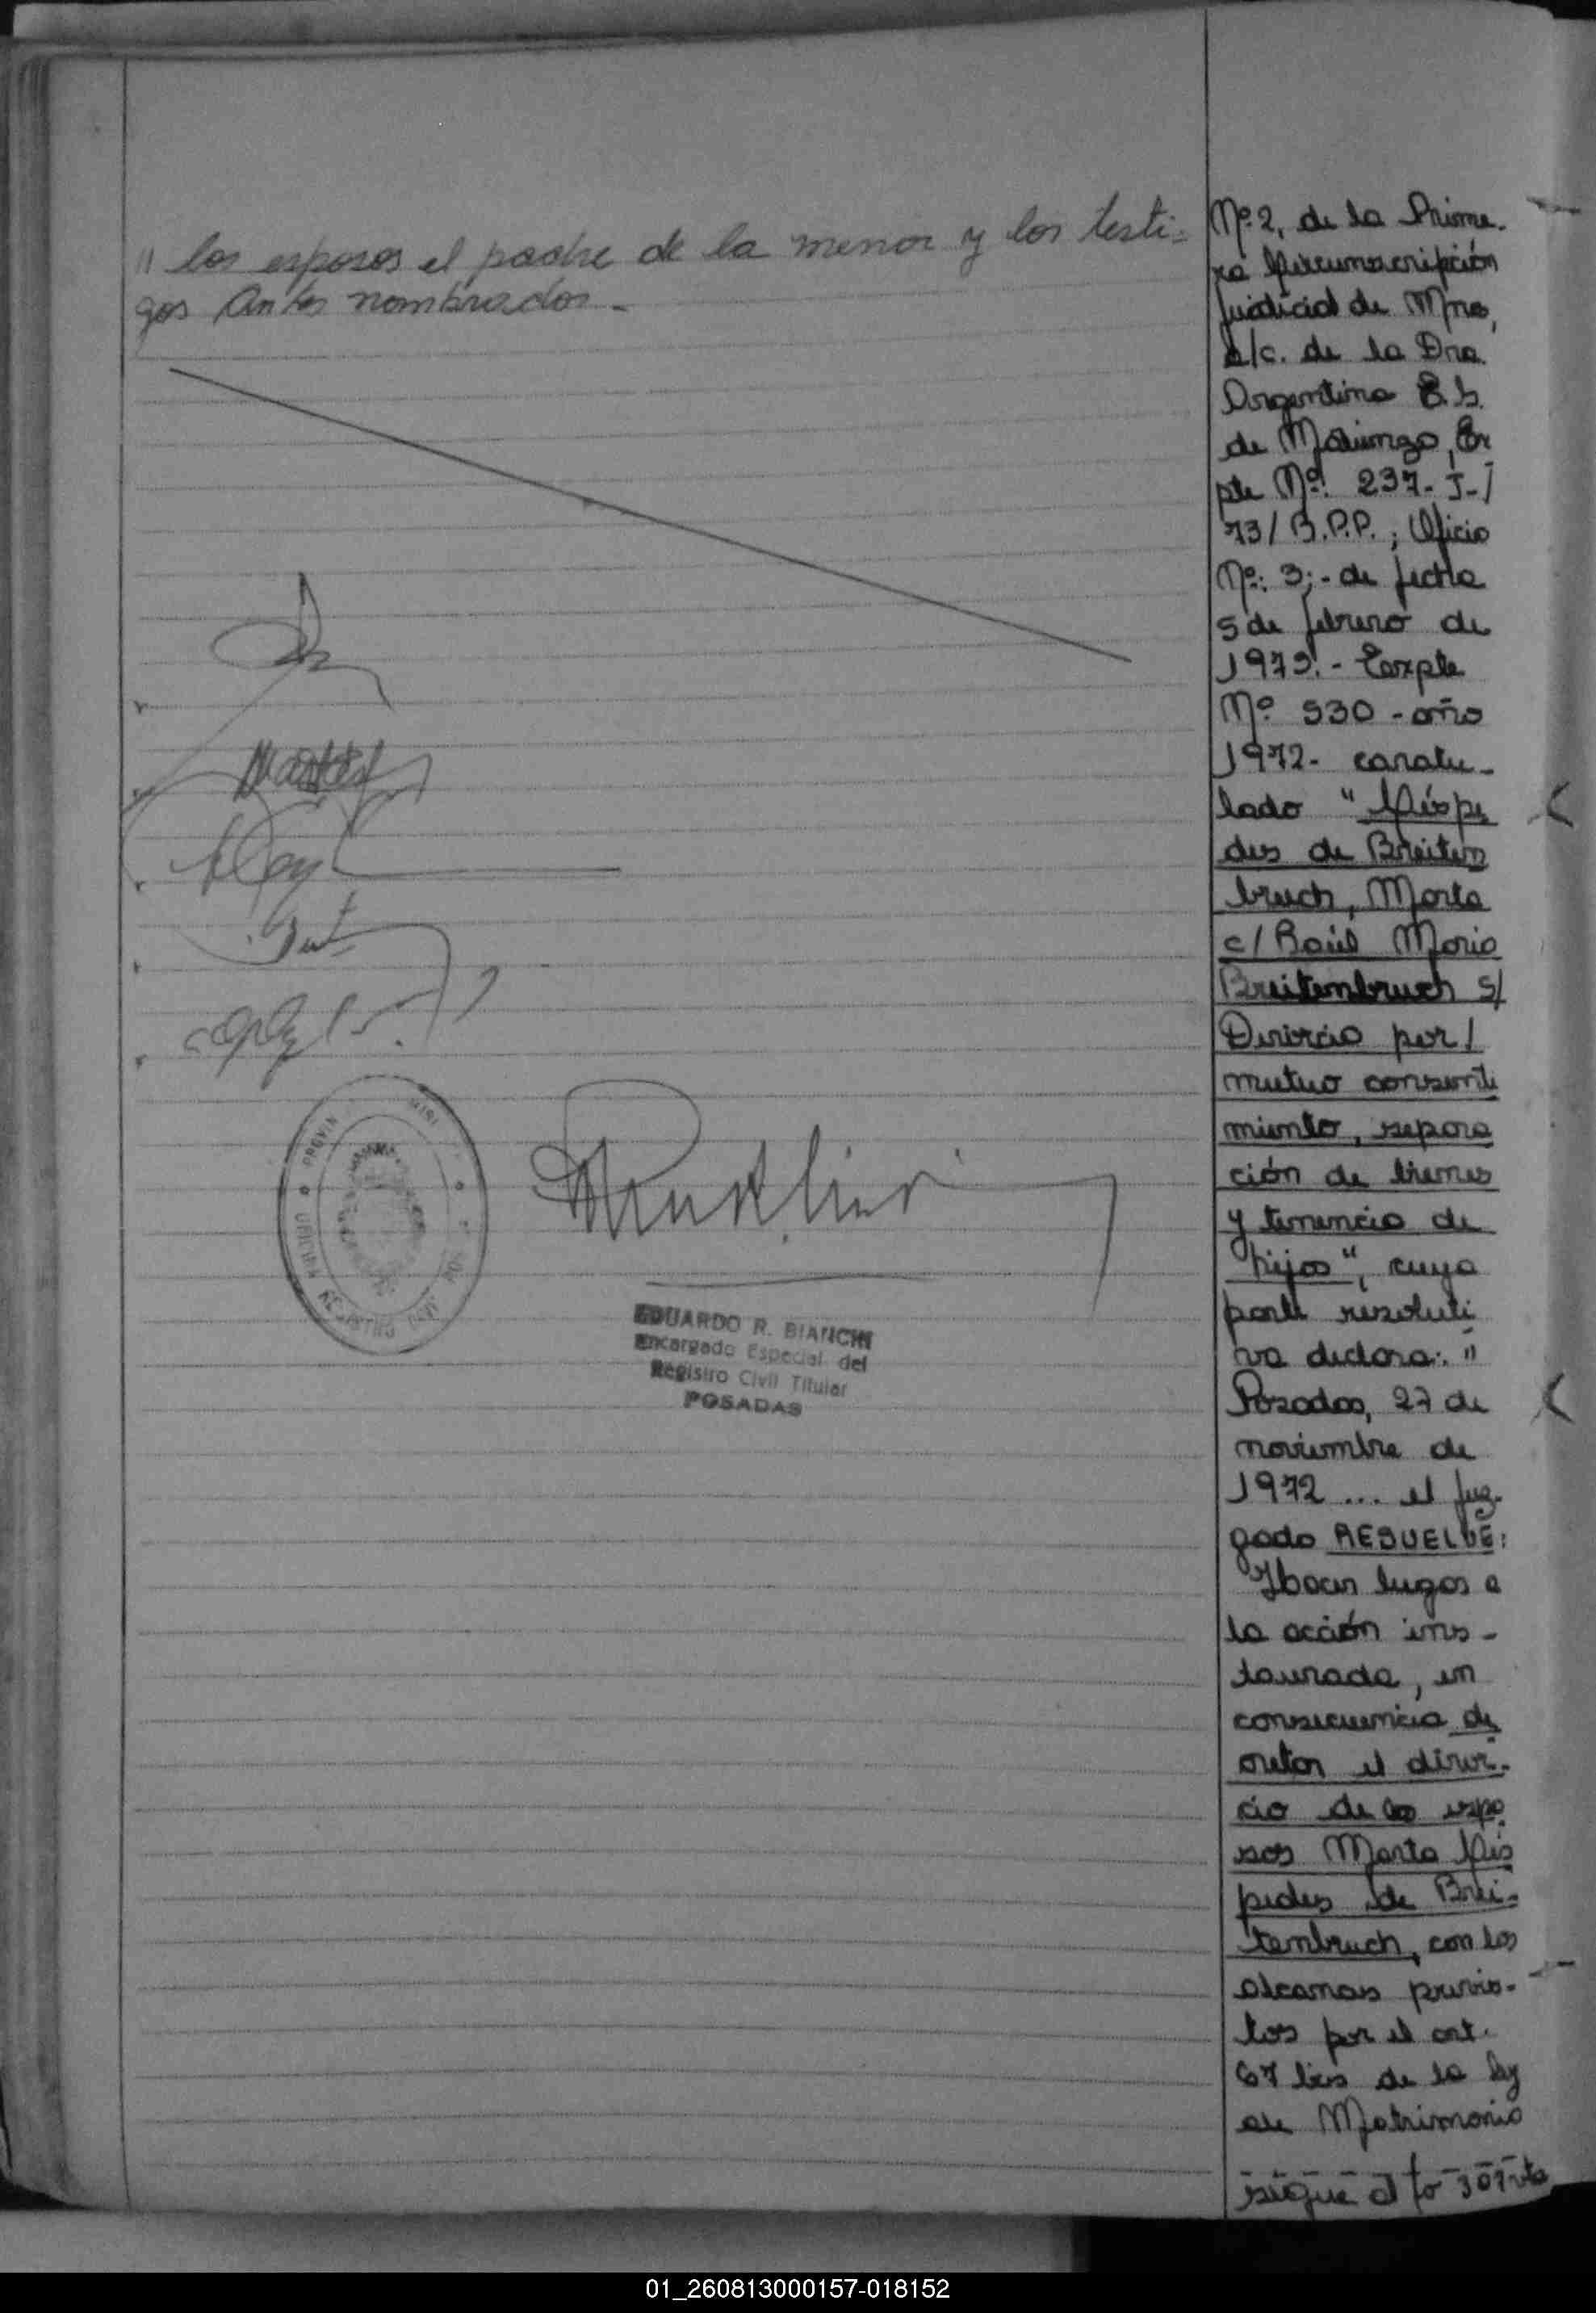 " los esposos el padre de la menor y los testi=
gos antes nombrados.-
EDUARDO R. BIANCHI
Encargado Especial del
Registro Civil Titular
POSADAS
Nº 2, de la Prime-
ra Circunscripción
Judicial de Mnes,
a/c. de la Dra.
Argentina
de
pte Nº: 237- J-/
73/ B.P.P.; Oficio
Nº: 3;- de fecha
5 de febrero de
1973.- Expte
Nº 530 - año
1972- caratu-
lado " Céspe
des de Breiten
bruch, Marta
c/ Raúl Mario
Breitembruch s/
Divorcio por/
mutuo consenti
miento, separa
ción de bienes
y tenencia de
hijos", cuya
parte resoluti
va declara: "
Posadas, 27 de
noviembre de
1972 ... el Juz-
gado RESUELVE:
Hacer lugar a
la acción ins-
taurada, en
consecuencia de
cretar el divor-
cio de los espo
sos Marta Cés
pedes de Brei-
tembruch, con los
alcances previs-
tos por el art.
67 bis de la ley
de Matrimonio
sigue al fo 307 vta
01_260813000157-018152